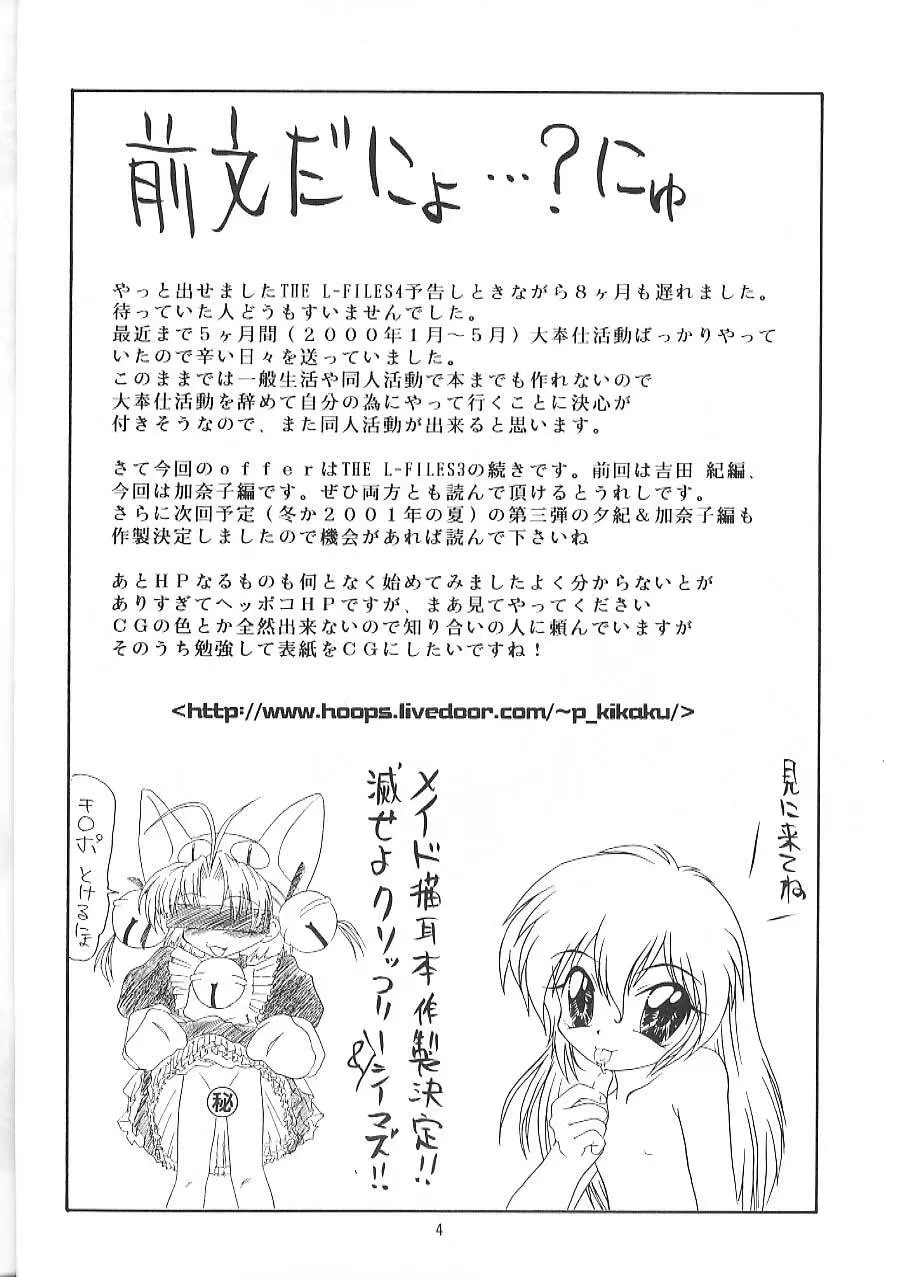 前文だにょ…?にゅ
やっと出せましたTHE L-FILES4予告しときながら8ヶ月も遅れました。
待っていた人どうもすいませんでした。
最近まで5ヶ月間(2000年1月〜5月)大奉仕活動ばっかりやって
いたので辛い日々を送っていました。
このままでは一般生活や同人活動で本までも作れないので
大奉仕活動を辞めて自分の為にやって行くことに決心が
付きそうなので、また同人活動が出来ると思います。
さて今回のofferはTHE L-FILES3の続きです。前回は吉田 紀編、
今回は加奈子編です。ぜひ両方とも読んで頂けるとうれしです。
さらに次回予定(冬か2001年の夏)の第三弾の夕紀&加奈子編も
作製決定しましたので機会があれば読んで下さいね
あとHPなるものも何となく始めてみましたよく分からないとが
ありすぎてヘッポコHPですが、まあ見てやってください
CGの色とか全然出来ないので知り合いの人に頼んでいますが
そのうち勉強して表紙をCGにしたいですね!
<http://www.hoops.livedoor.com/~p_kikaku/>
見に来てね
メイド猫耳本作製決定!!
滅せよクリッコリーニィマズ!!
キ○ポ とけるにょ
㊙
4